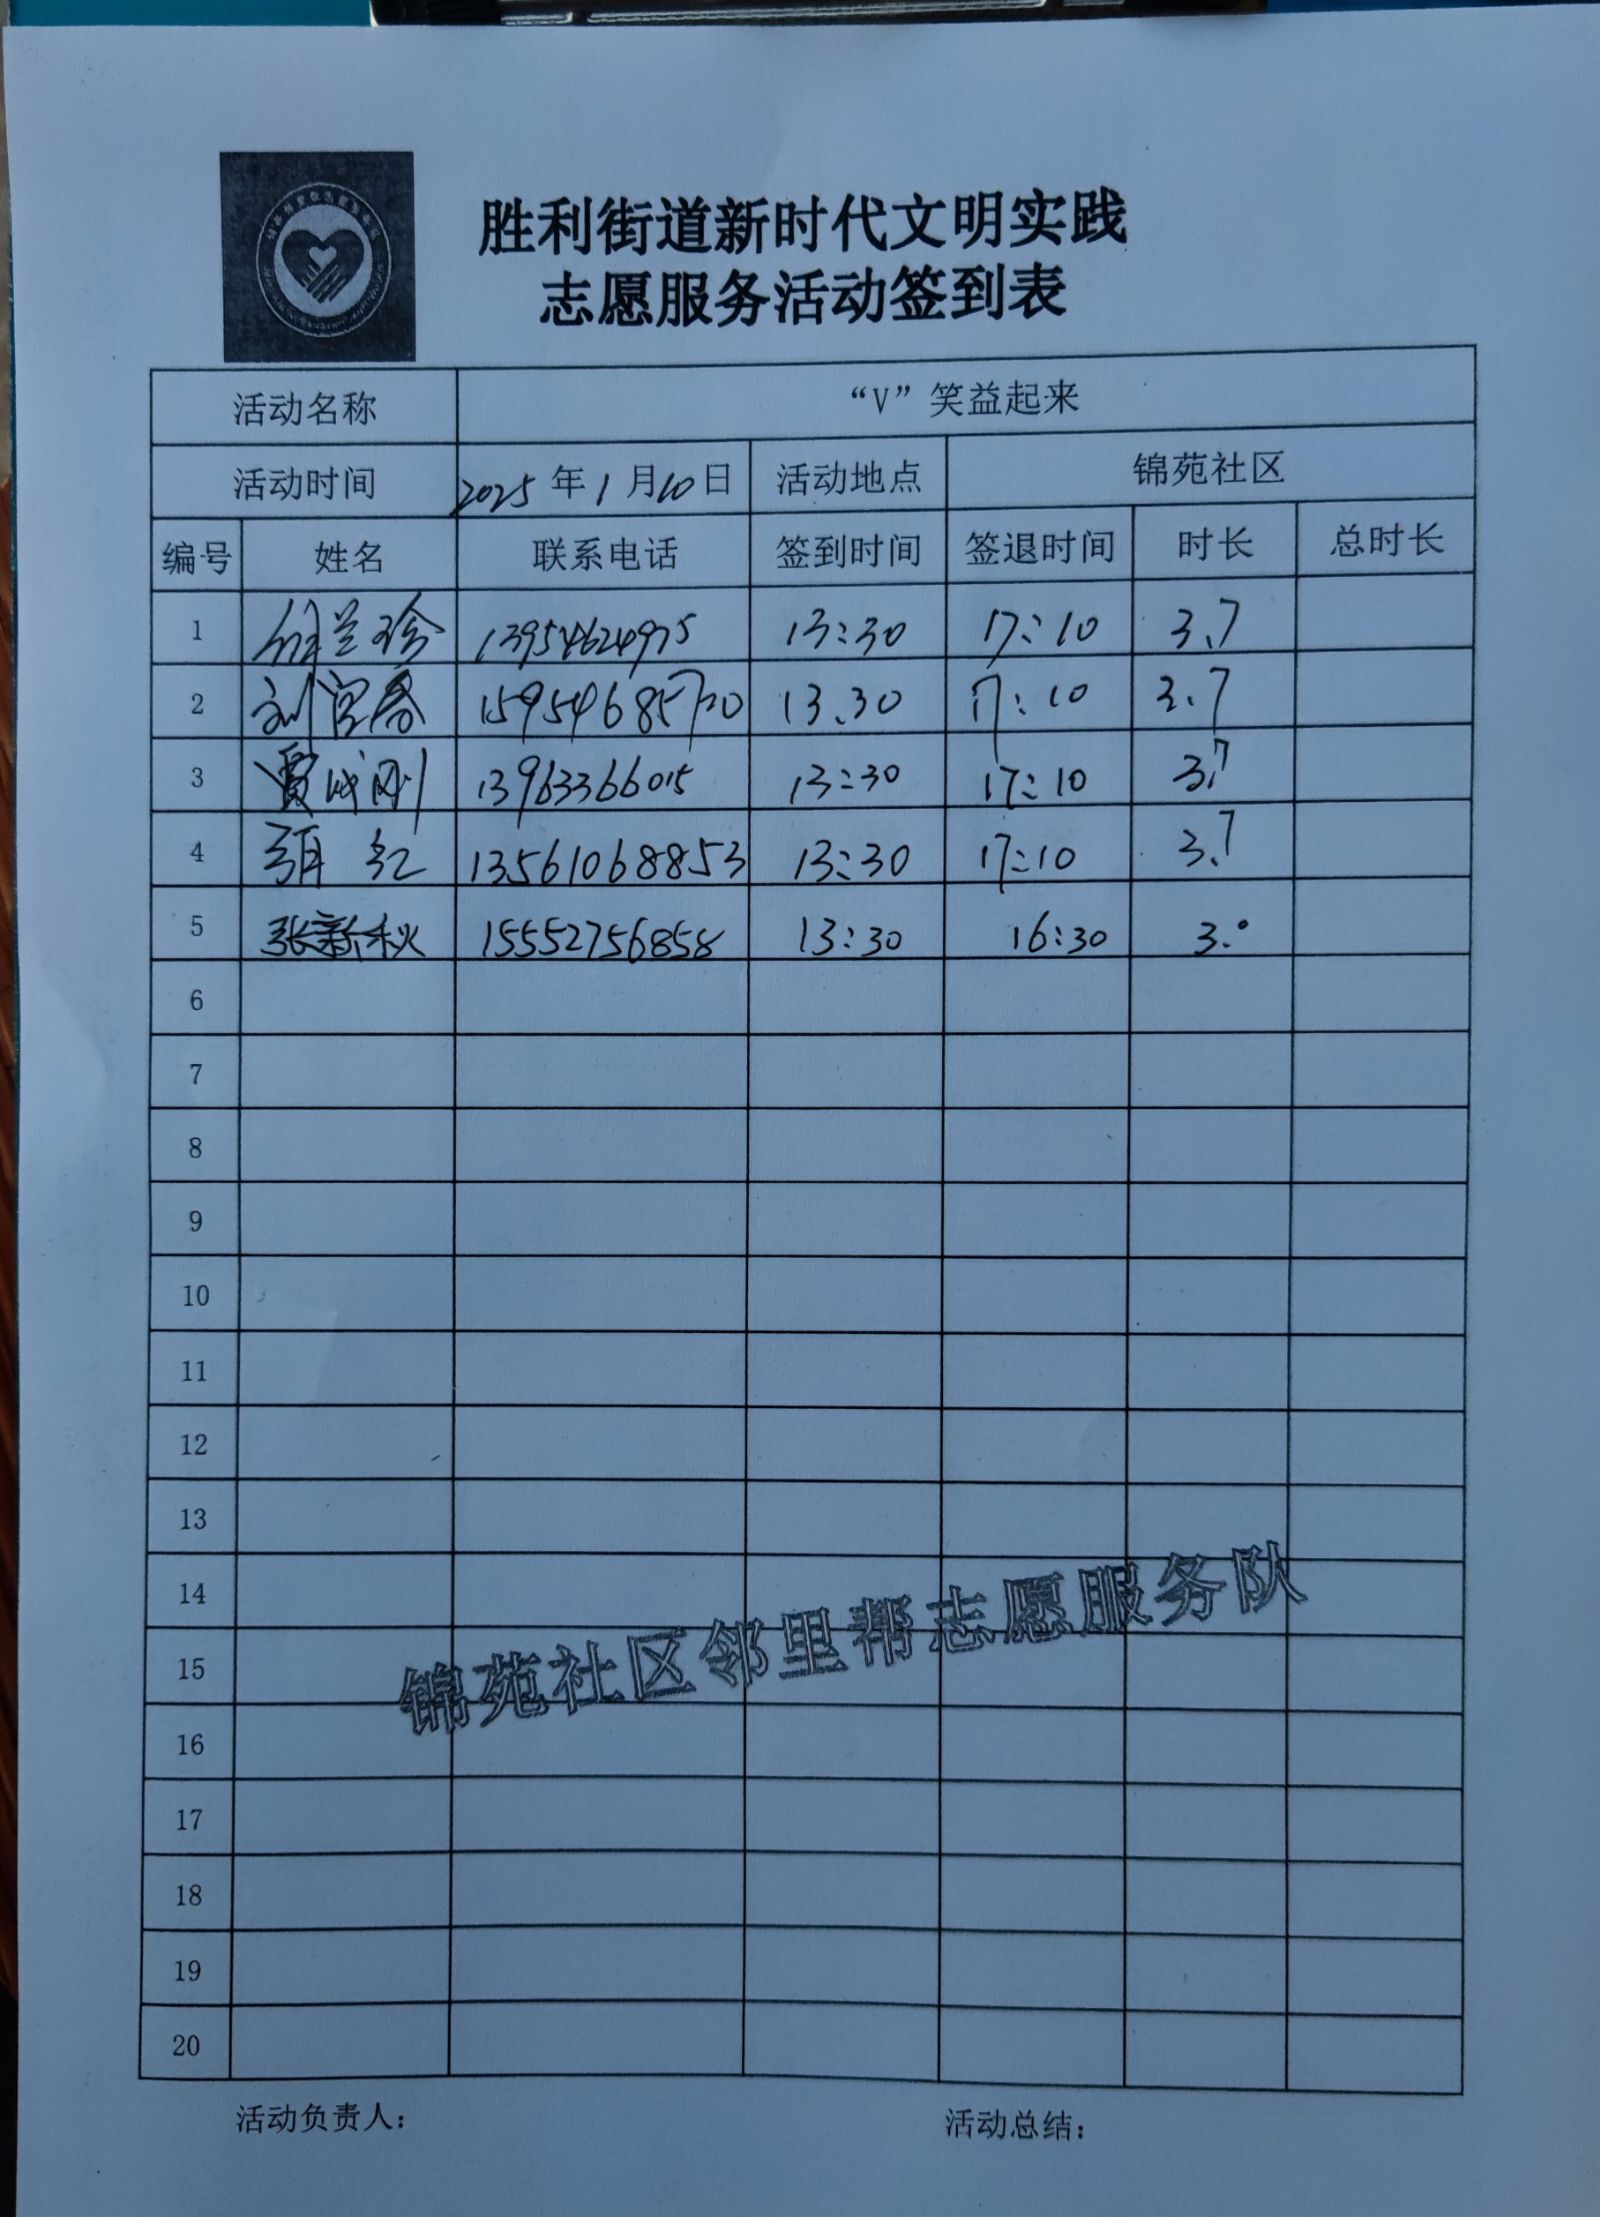 胜利街道新时代文明实践
志愿服务活动签到表
活动名称 “V”笑益起来
活动时间 2025年1月10日 活动地点 锦苑社区
编号 姓名 联系电话 签到时间 签退时间 时长 总时长
1 兰珍 13954624975 13:30 17:10 3.7
2 刘宜春 15954685720 13.30 17:10 3.7
3 贾成刚 13963366015 13:30 17:10 3.7
4 红 13561068853 13:30 17:10 3.7
5 张新秋 15552756858 13:30 16:30 3.0
6
7
8
9
10
11
12
13
14
15
锦苑社区邻里帮志愿服务队
16
17
18
19
20
活动负责人： 活动总结：